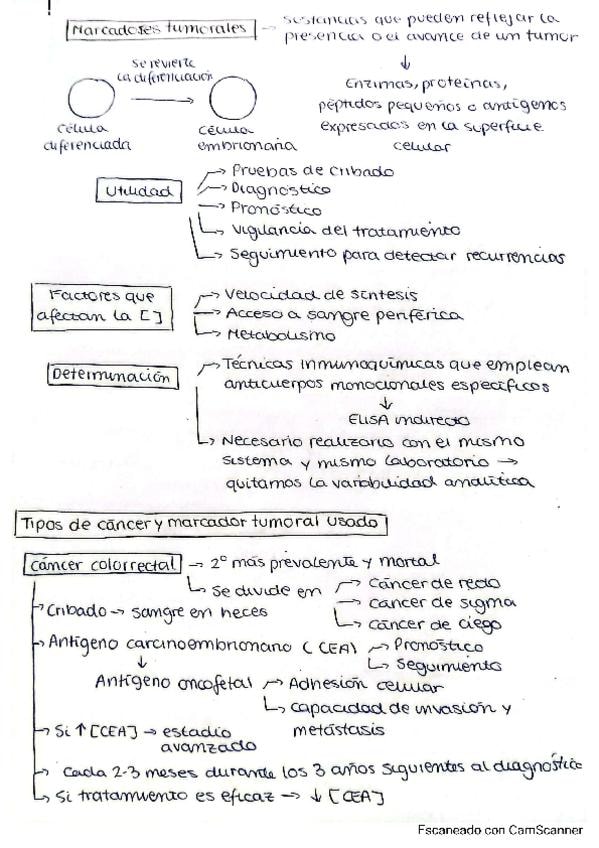 Marcadores tumorales → sustancias que pueden reflejar la
presencia o el avance de un tumor
↓
Enzimas, proteínas,
péptidos pequeños o antígenos
expresados en la superficie
celular
se revierte
la diferenciación
célula
diferenciada
→
célula
embrionaria
Utilidad
→ Pruebas de cribado
→ Diagnóstico
→ Pronóstico
→ Vigilancia del tratamiento
→ Seguimiento para detectar recurrencias
Factores que
afectan la [ ]
→ Velocidad de síntesis
→ Acceso a sangre periférica
→ Metabolismo
Determinación
→ Técnicas inmunoquímicas que emplean
anticuerpos monoclonales específicos
↓
ELISA indirecto
→ Necesario realizarlo con el mismo
sistema y mismo laboratorio →
quitamos la variabilidad analítica
Tipos de cáncer y marcador tumoral usado
Cáncer colorrectal → 2º más prevalente y mortal
→ Se divide en → cáncer de recto
→ cáncer de sigma
→ cáncer de ciego
→ Cribado → sangre en heces
→ Antígeno carcinoembrionario (CEA) → Pronóstico
→ Seguimiento
↓
Antígeno oncofetal → Adhesión celular
→ capacidad de invasión y
metástasis
→ Si ↑ [CEA] → estadio
avanzado
→ Cada 2-3 meses durante los 3 años siguientes al diagnóstico
→ Si tratamiento es eficaz → ↓ [CEA]
Escaneado con CamScanner